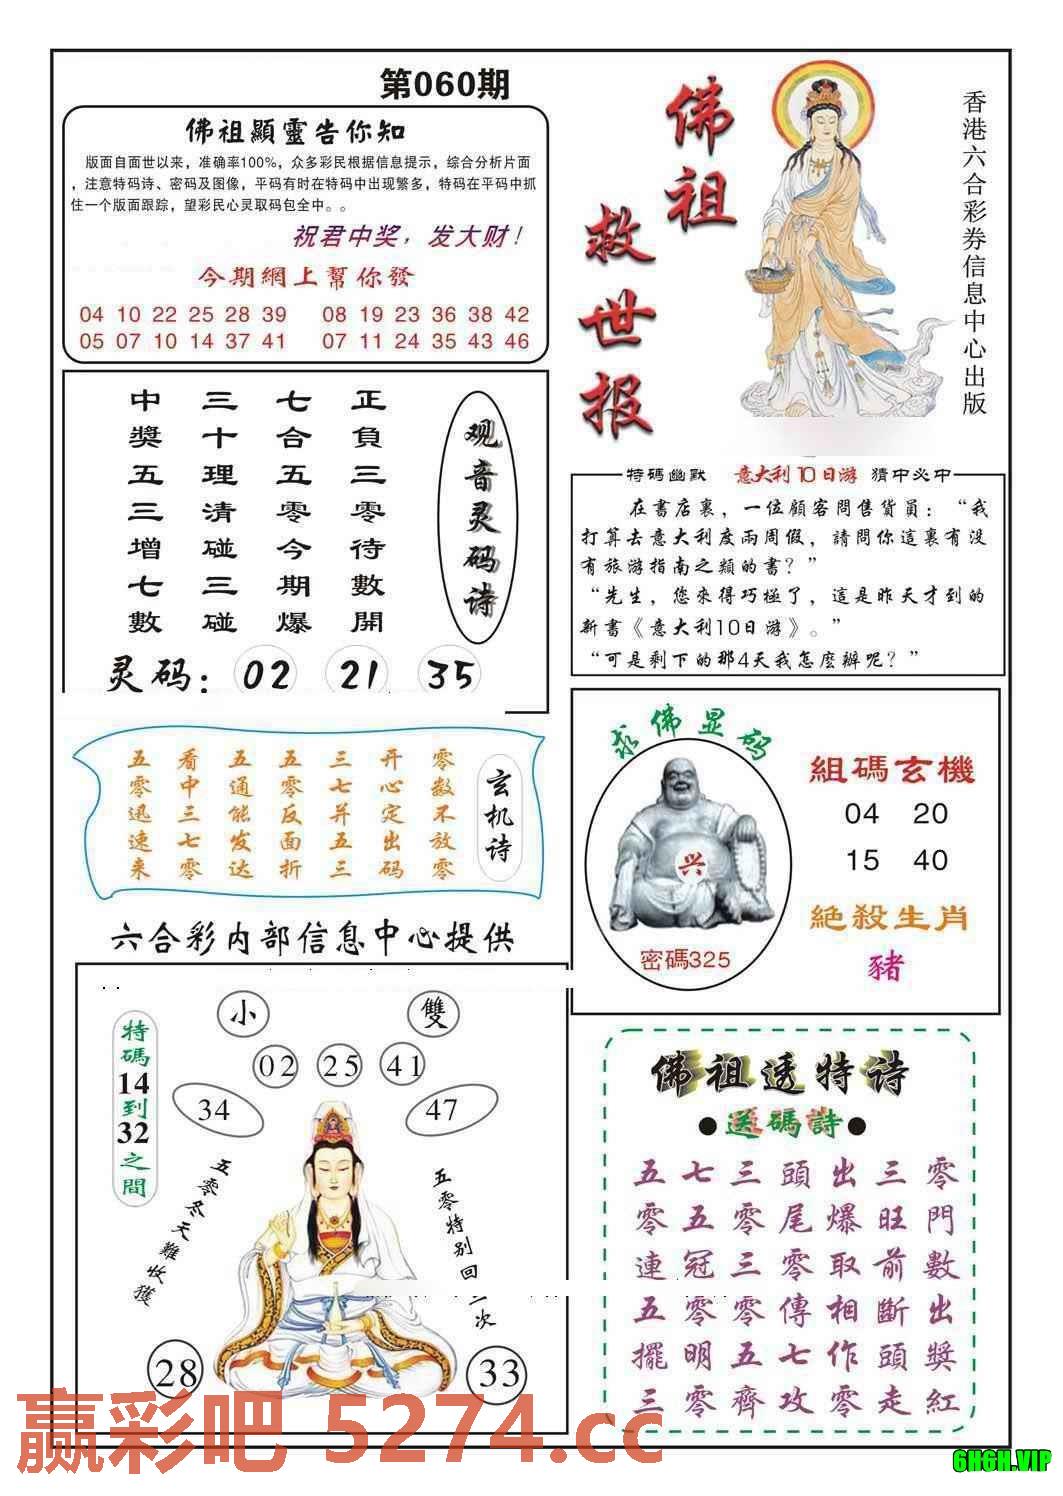 第060期
佛祖顯靈告你知
版面自面世以来，准确率100%，众多彩民根据信息提示，综合分析片面
，注意特码诗、密码及图像，平码有时在特码中出现繁多，特码在平码中抓
住一个版面跟踪，望彩民心灵取码包全中。。
祝君中奖，发大财！
今期網上幫你發
04 10 22 25 28 39 08 19 23 36 38 42
05 07 10 14 37 41 07 11 24 35 43 46
佛祖
救世报
香港六合彩券信息中心出版
观音灵码诗
正負三零待數開
七合五零今期爆
三十理清碰三碰
中獎五三增七數
灵码：02 21 35
特碼幽默 意大利10日游 猜中必中
在書店裏，一位顧客問售貨員：“我
打算去意大利度兩周假，請問你這裏有沒
有旅游指南之類的書？”
“先生，您來得巧極了，這是昨天才到的
新書《意大利10日游》。”
“可是剩下的那4天我怎麽辦呢？”
玄机诗
零数不放零
开心定出码
三七并五三
五零反面折
五通能发达
看中三七零
五零迅速来
求佛显码
兴
密碼325
組碼玄機
04 20
15 40
絕殺生肖
豬
六合彩内部信息中心提供
小 雙
02 25 41
34 47
特碼14到32之間
五零冬天難收獲
五零特别回
次
28 33
佛祖透特诗
●送碼詩●
零門數出獎紅
三旺前斷頭走
出爆取相作零
頭尾零傳七攻
三零三零五齊
七五冠零明零
五零連五擺三
赢彩吧 5274.cc
6H6H.VIP